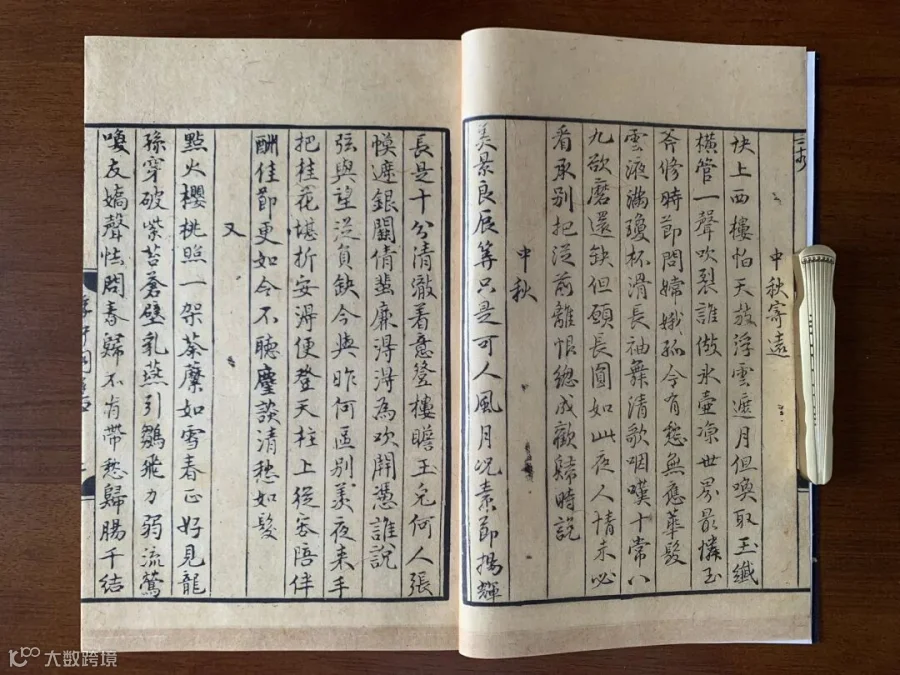 中秋寄遠
快上西樓怕天放浮雲遮月但喚取玉纖
橫管一聲吹裂誰做氷壺凉世界最憐玉
斧修時節問嫦娥孤令有愁無應華髮
雲液滿瓊杯滑長袖舞清歌咽嘆十常八
九欲磨還缺但願長圓如此夜人情未必
看承別把從前離恨總成歡歸時說
中秋
美景良辰等只是可人風月況素節揚輝
長是十分清澈着意登樓瞻玉兔何人張
幙遮銀闕倩蜚廉得得為吹開憑誰說
弦與望從負缺今與昨何區別羨夜来手
把桂花堪折安得便登天柱上從容陪伴
酬佳節更如今不聽麈談清愁如髮
又
點火櫻桃照一架荼蘪如雪春正好見龍
孫穿破紫苔蒼壁乳燕引鶵飛力弱流鶯
喚友嬌聲怯問春歸不肯帶愁歸腸千結
大数跨境